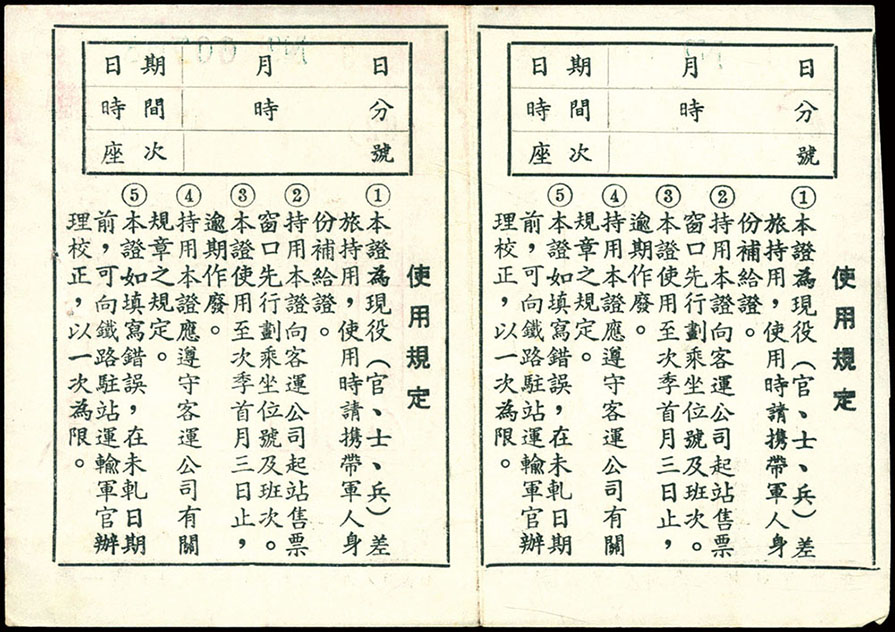 日期 月 日
時間 時 分
座次 號
使用規定
①本證為現役（官、士、兵）差
旅持用，使用時請携帶軍人身
份補給證。
②持用本證向客運公司起站售票
窗口先行劃乘坐位號及班次。
③本證使用至次季首月三日止，
逾期作廢。
④持用本證應遵守客運公司有關
規章之規定。
⑤本證如填寫錯誤，在未軋日期
前，可向鐵路駐站運輸軍官辦
理校正，以一次為限。
日期 月 日
時間 時 分
座次 號
使用規定
①本證為現役（官、士、兵）差
旅持用，使用時請携帶軍人身
份補給證。
②持用本證向客運公司起站售票
窗口先行劃乘坐位號及班次。
③本證使用至次季首月三日止，
逾期作廢。
④持用本證應遵守客運公司有關
規章之規定。
⑤本證如填寫錯誤，在未軋日期
前，可向鐵路駐站運輸軍官辦
理校正，以一次為限。